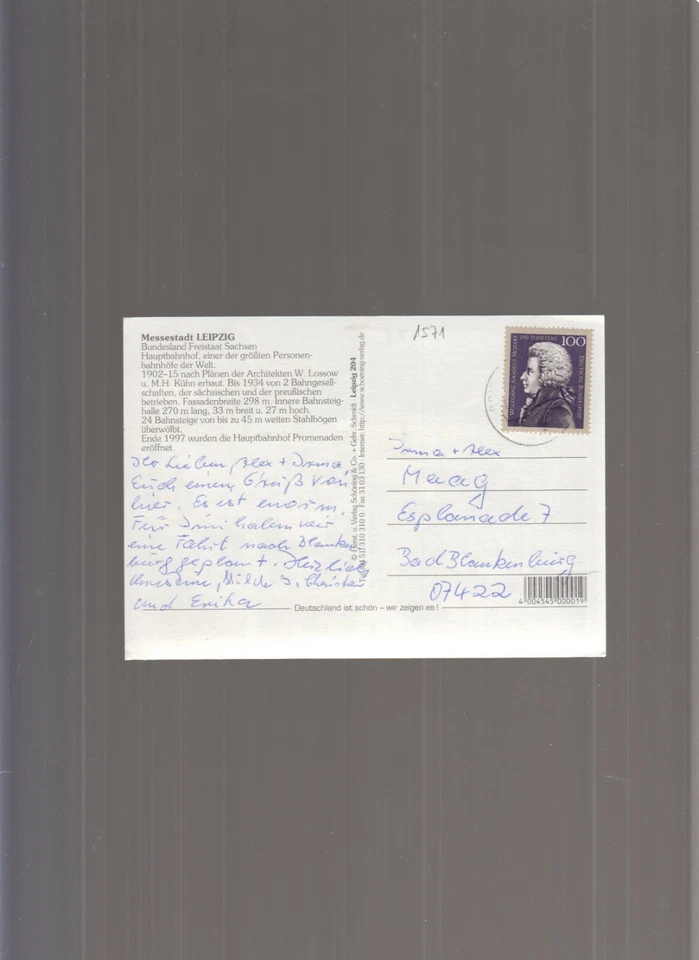 Messestadt LEIPZIG
Bundesland Freistaat Sachsen
Hauptbahnhof, einer der größten Personen-
bahnhöfe der Welt.
1902–15 nach Plänen der Architekten W. Lossow
u. M.H. Kühn erbaut. Bis 1934 von 2 Bahngesell-
schaften, der sächsischen und der preußischen
betrieben. Fassadenbreite 298 m. Innere Bahnsteig-
halle 270 m lang, 33 m breit u. 27 m hoch.
24 Bahnsteige von bis zu 45 m weiten Stahlbögen
überwölbt.
Ende 1997 wurden die Hauptbahnhof Promenaden
eröffnet.
Ihr Lieben Alex + Irma,
Euch einen Gruß von
hier. Es ist enorm.
Für Juni haben wir
eine Fahrt nach Blanken
burg geplant. Herzlich
und Erika
Deutschland ist schön – wir zeigen es!
Schöning & Co. + Gebr. Schmidt Leipzig 204
Internet: http://www.schoening-verlag.de
1571
WOLFGANG AMADEUS MOZART
200. TODESTAG
100
DEUTSCHE BUNDESPOST
Irma + Alex
Maag
Esplanade 7
Bad Blankenburg
07422
4 004545 000019